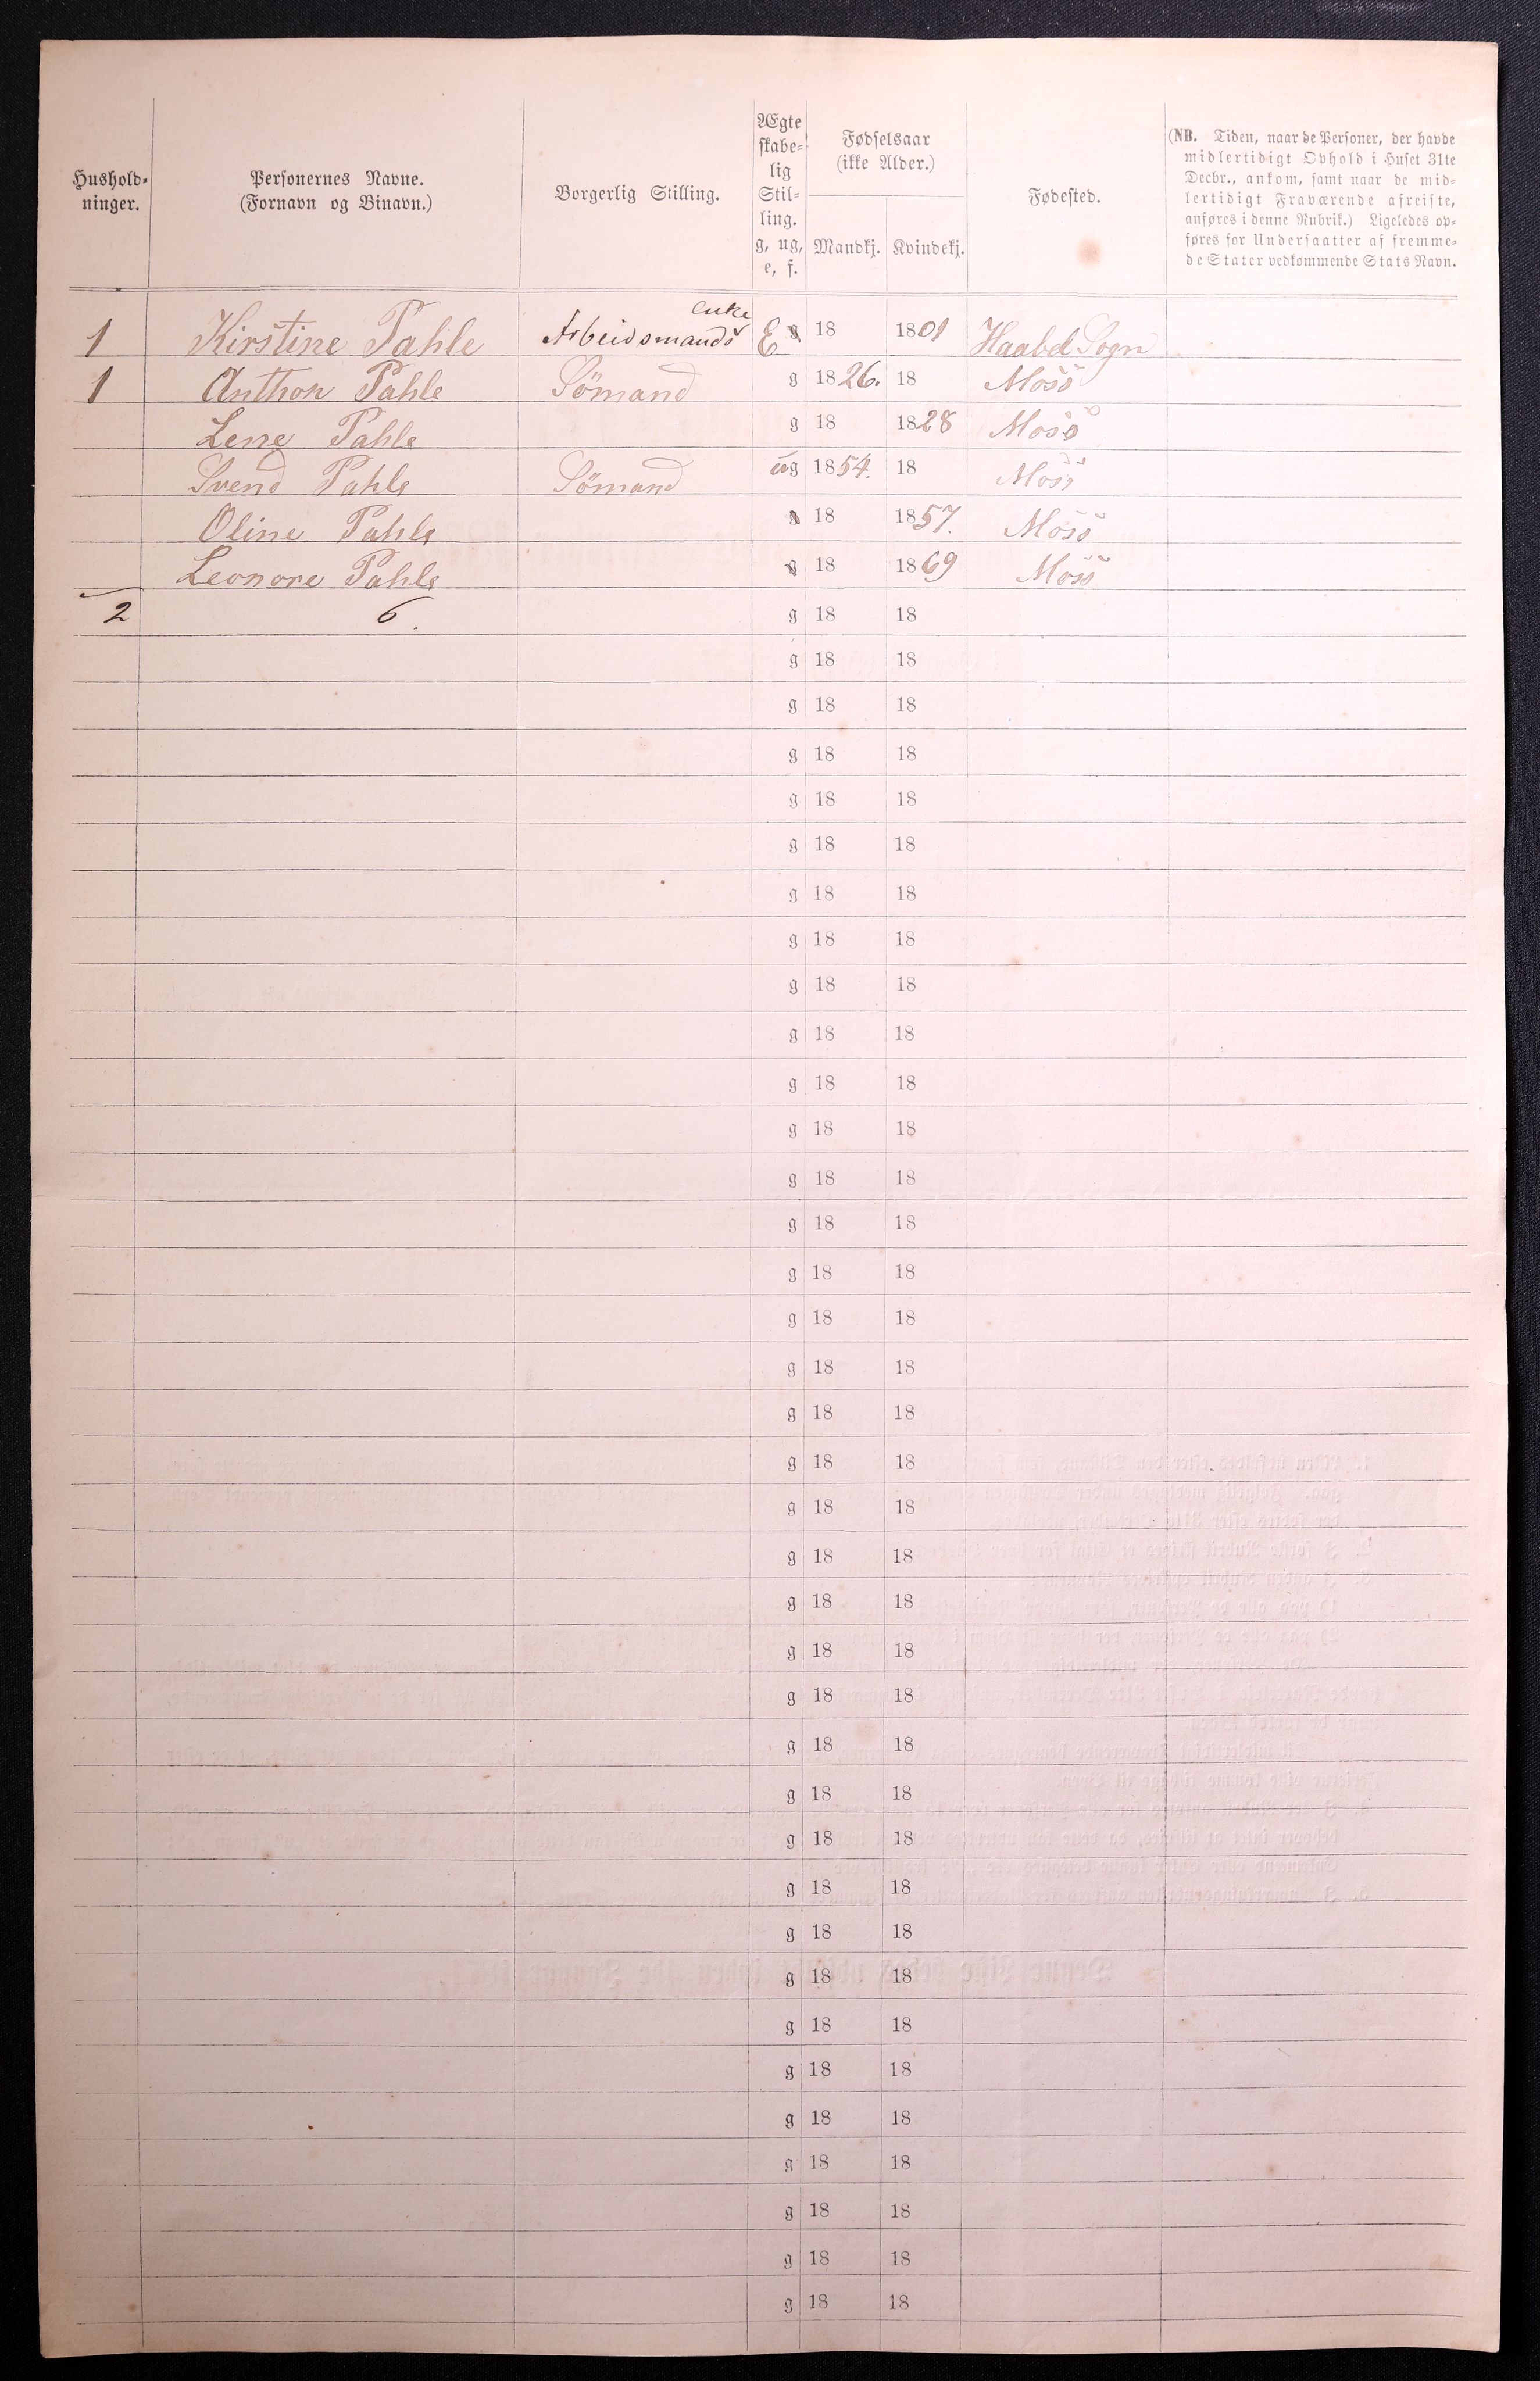 Hushold-
ninger.
Personernes Navne.
(Fornavn og Binavn.)
Borgerlig Stilling.
Ægte
skabe-
lig
Stil-
ling.
g, ug,
e, f.
Fødselsaar
(ikke Alder.)
Mandkj. Kvindekj.
Fødested.
(NB. Tiden, naar de Personer, der havde
midlertidigt Ophold i Huset 31te
Decbr., ankom, samt naar de mid-
lertidigt Fraværende afreiste,
anføres i denne Rubrik.) Ligeledes op-
føres for Undersaatter af fremme-
de Stater vedkommende Stats Navn.
1 Kirstine Pahle Arbeidsmands enke E g 18 1801 Haabøl Sogn
1 Anthon Pahle Sömand g 1826. 18 Moss
Lene Pahle g 18 1828 Moss
Svend Pahle Sömand ug 1854. 18 Moss
Oline Pahle g 18 1857. Moss
Leonore Pahle g 18 1869 Moss
2 6. g 18 18
g 18 18
g 18 18
g 18 18
g 18 18
g 18 18
g 18 18
g 18 18
g 18 18
g 18 18
g 18 18
g 18 18
g 18 18
g 18 18
g 18 18
g 18 18
g 18 18
g 18 18
g 18 18
g 18 18
g 18 18
g 18 18
g 18 18
g 18 18
g 18 18
g 18 18
g 18 18
g 18 18
g 18 18
g 18 18
g 18 18
g 18 18
g 18 18
g 18 18
g 18 18
g 18 18
g 18 18